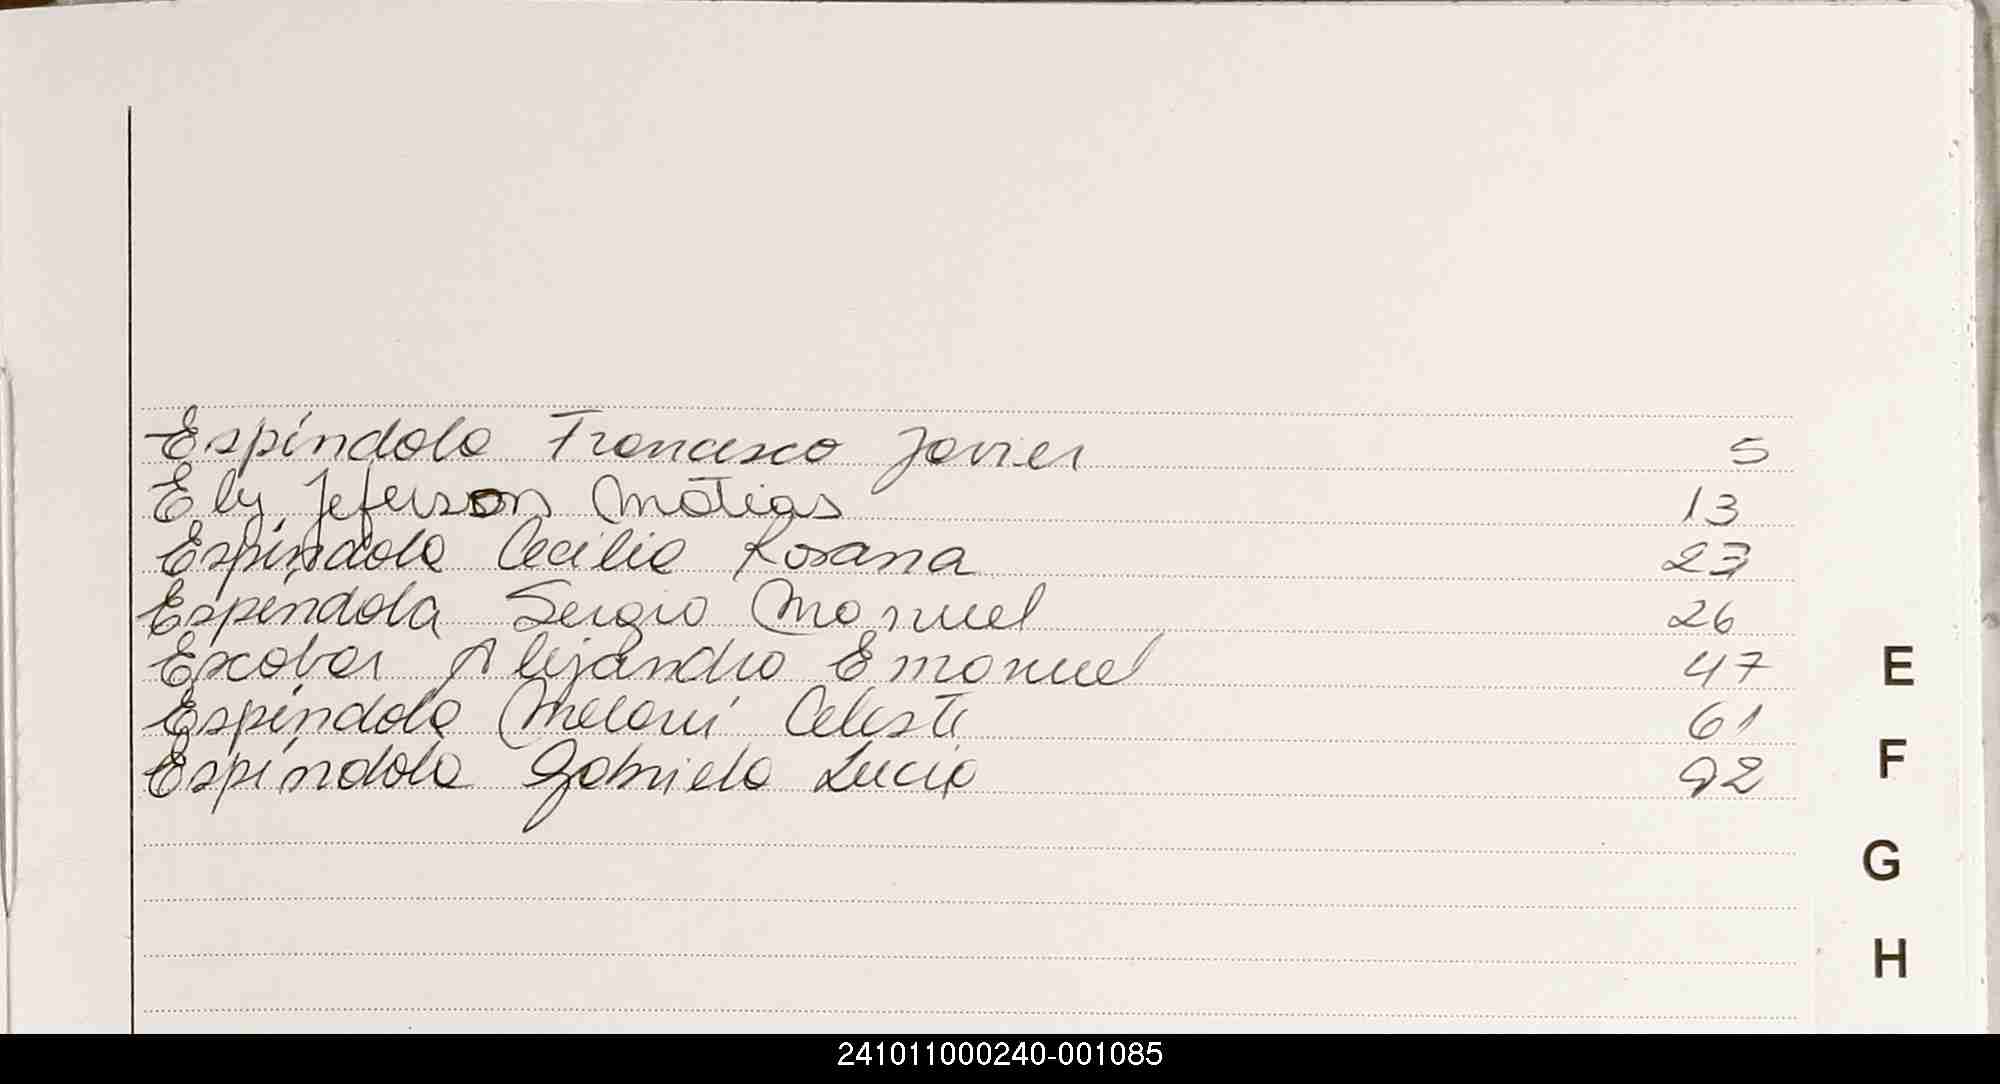 Espíndola Francisco Javier 5
Ely Jeferson Matias 13
Espíndola Cecilia Rosana 23
Espíndola Sergio Manuel 26
Escobar Alejandro Emanuel 47
Espíndola Melani Celeste 61
Espíndola Gabriela Lucia 92
E
F
G
H
241011000240-001085